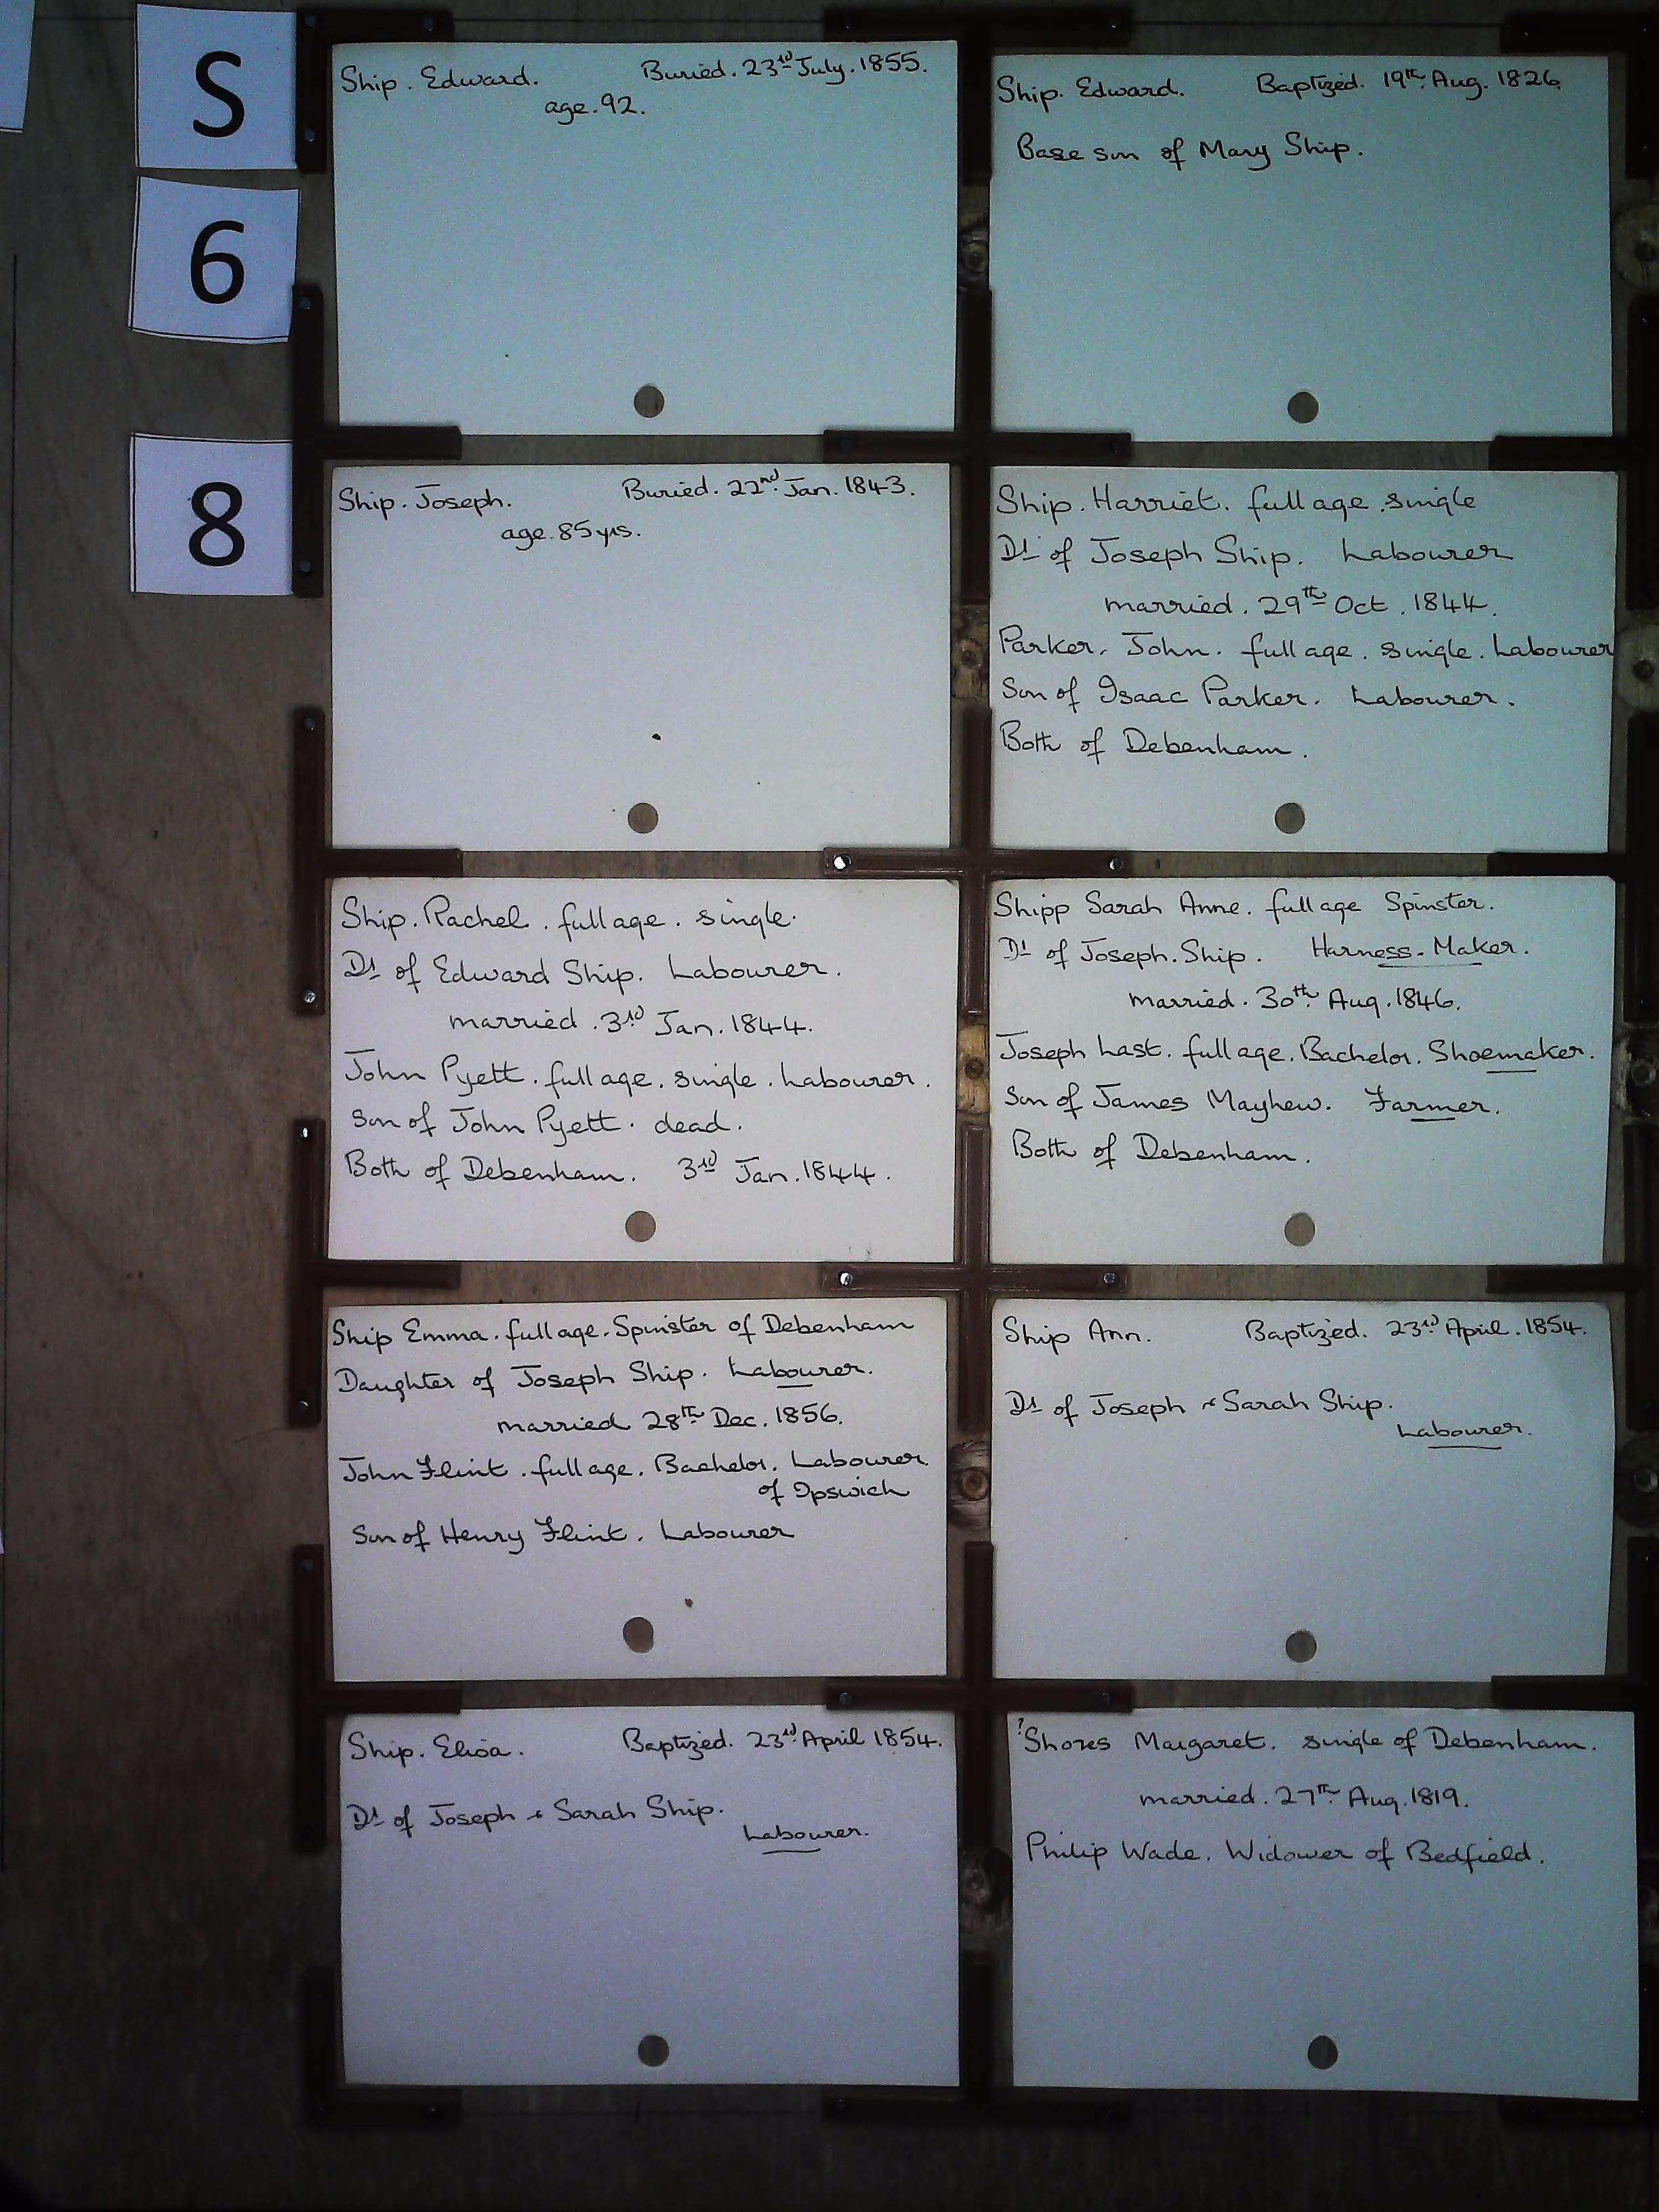 S
6
8
Ship. Edward. Buried. 23rd July. 1855.
age. 92.
Ship. Edward. Baptized. 19th Aug. 1826.
Base son of Mary Ship.
Ship. Joseph. Buried. 22nd Jan. 1843.
age. 85 yrs.
Ship. Harriet. full age. single
Dt of Joseph Ship. Labourer
married. 29th Oct. 1844.
Parker. John. full age. single. Labourer
Son of Isaac Parker. Labourer.
Both of Debenham.
Ship. Rachel. full age. single.
Dt of Edward Ship. Labourer.
married. 3rd Jan. 1844.
John Pyett. full age. single. Labourer.
Son of John Pyett. dead.
Both of Debenham. 3rd Jan. 1844.
Shipp Sarah Anne. full age Spinster.
Dt of Joseph. Ship. Harness-Maker.
married. 30th Aug. 1846.
Joseph Last. full age. Bachelor. Shoemaker.
Son of James Mayhew. Farmer.
Both of Debenham.
Ship Emma. full age. Spinster of Debenham
Daughter of Joseph Ship. Labourer.
married 28th Dec. 1856.
John Flint. full age. Bachelor. Labourer
of Ipswich
Son of Henry Flint. Labourer
Ship Ann. Baptized. 23rd April. 1854.
Dt of Joseph & Sarah Ship.
Labourer.
Ship. Elisa. Baptized. 23rd April 1854.
Dt of Joseph & Sarah Ship.
Labourer.
?Shores Margaret. single of Debenham.
married. 27th Aug. 1819.
Philip Wade. Widower of Bedfield.